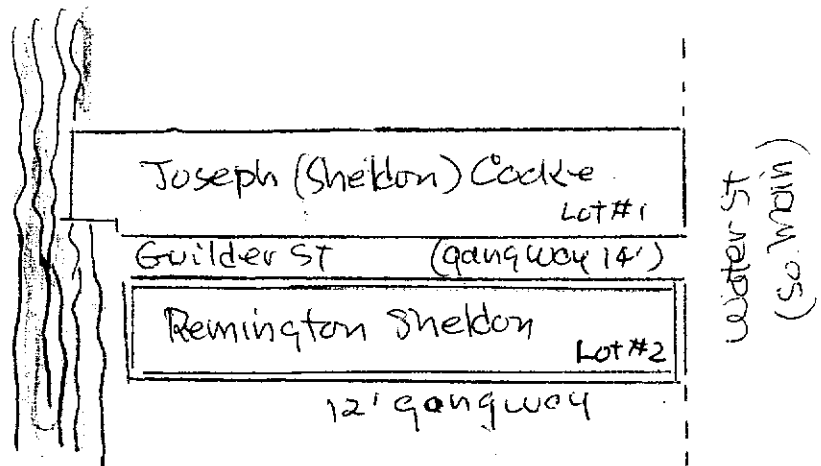 Joseph (Sheldon) Cooke
Lot #1
Guilder St (gangway 14')
Remington Sheldon
Lot #2
12' gangway
Water St
(So. Main)